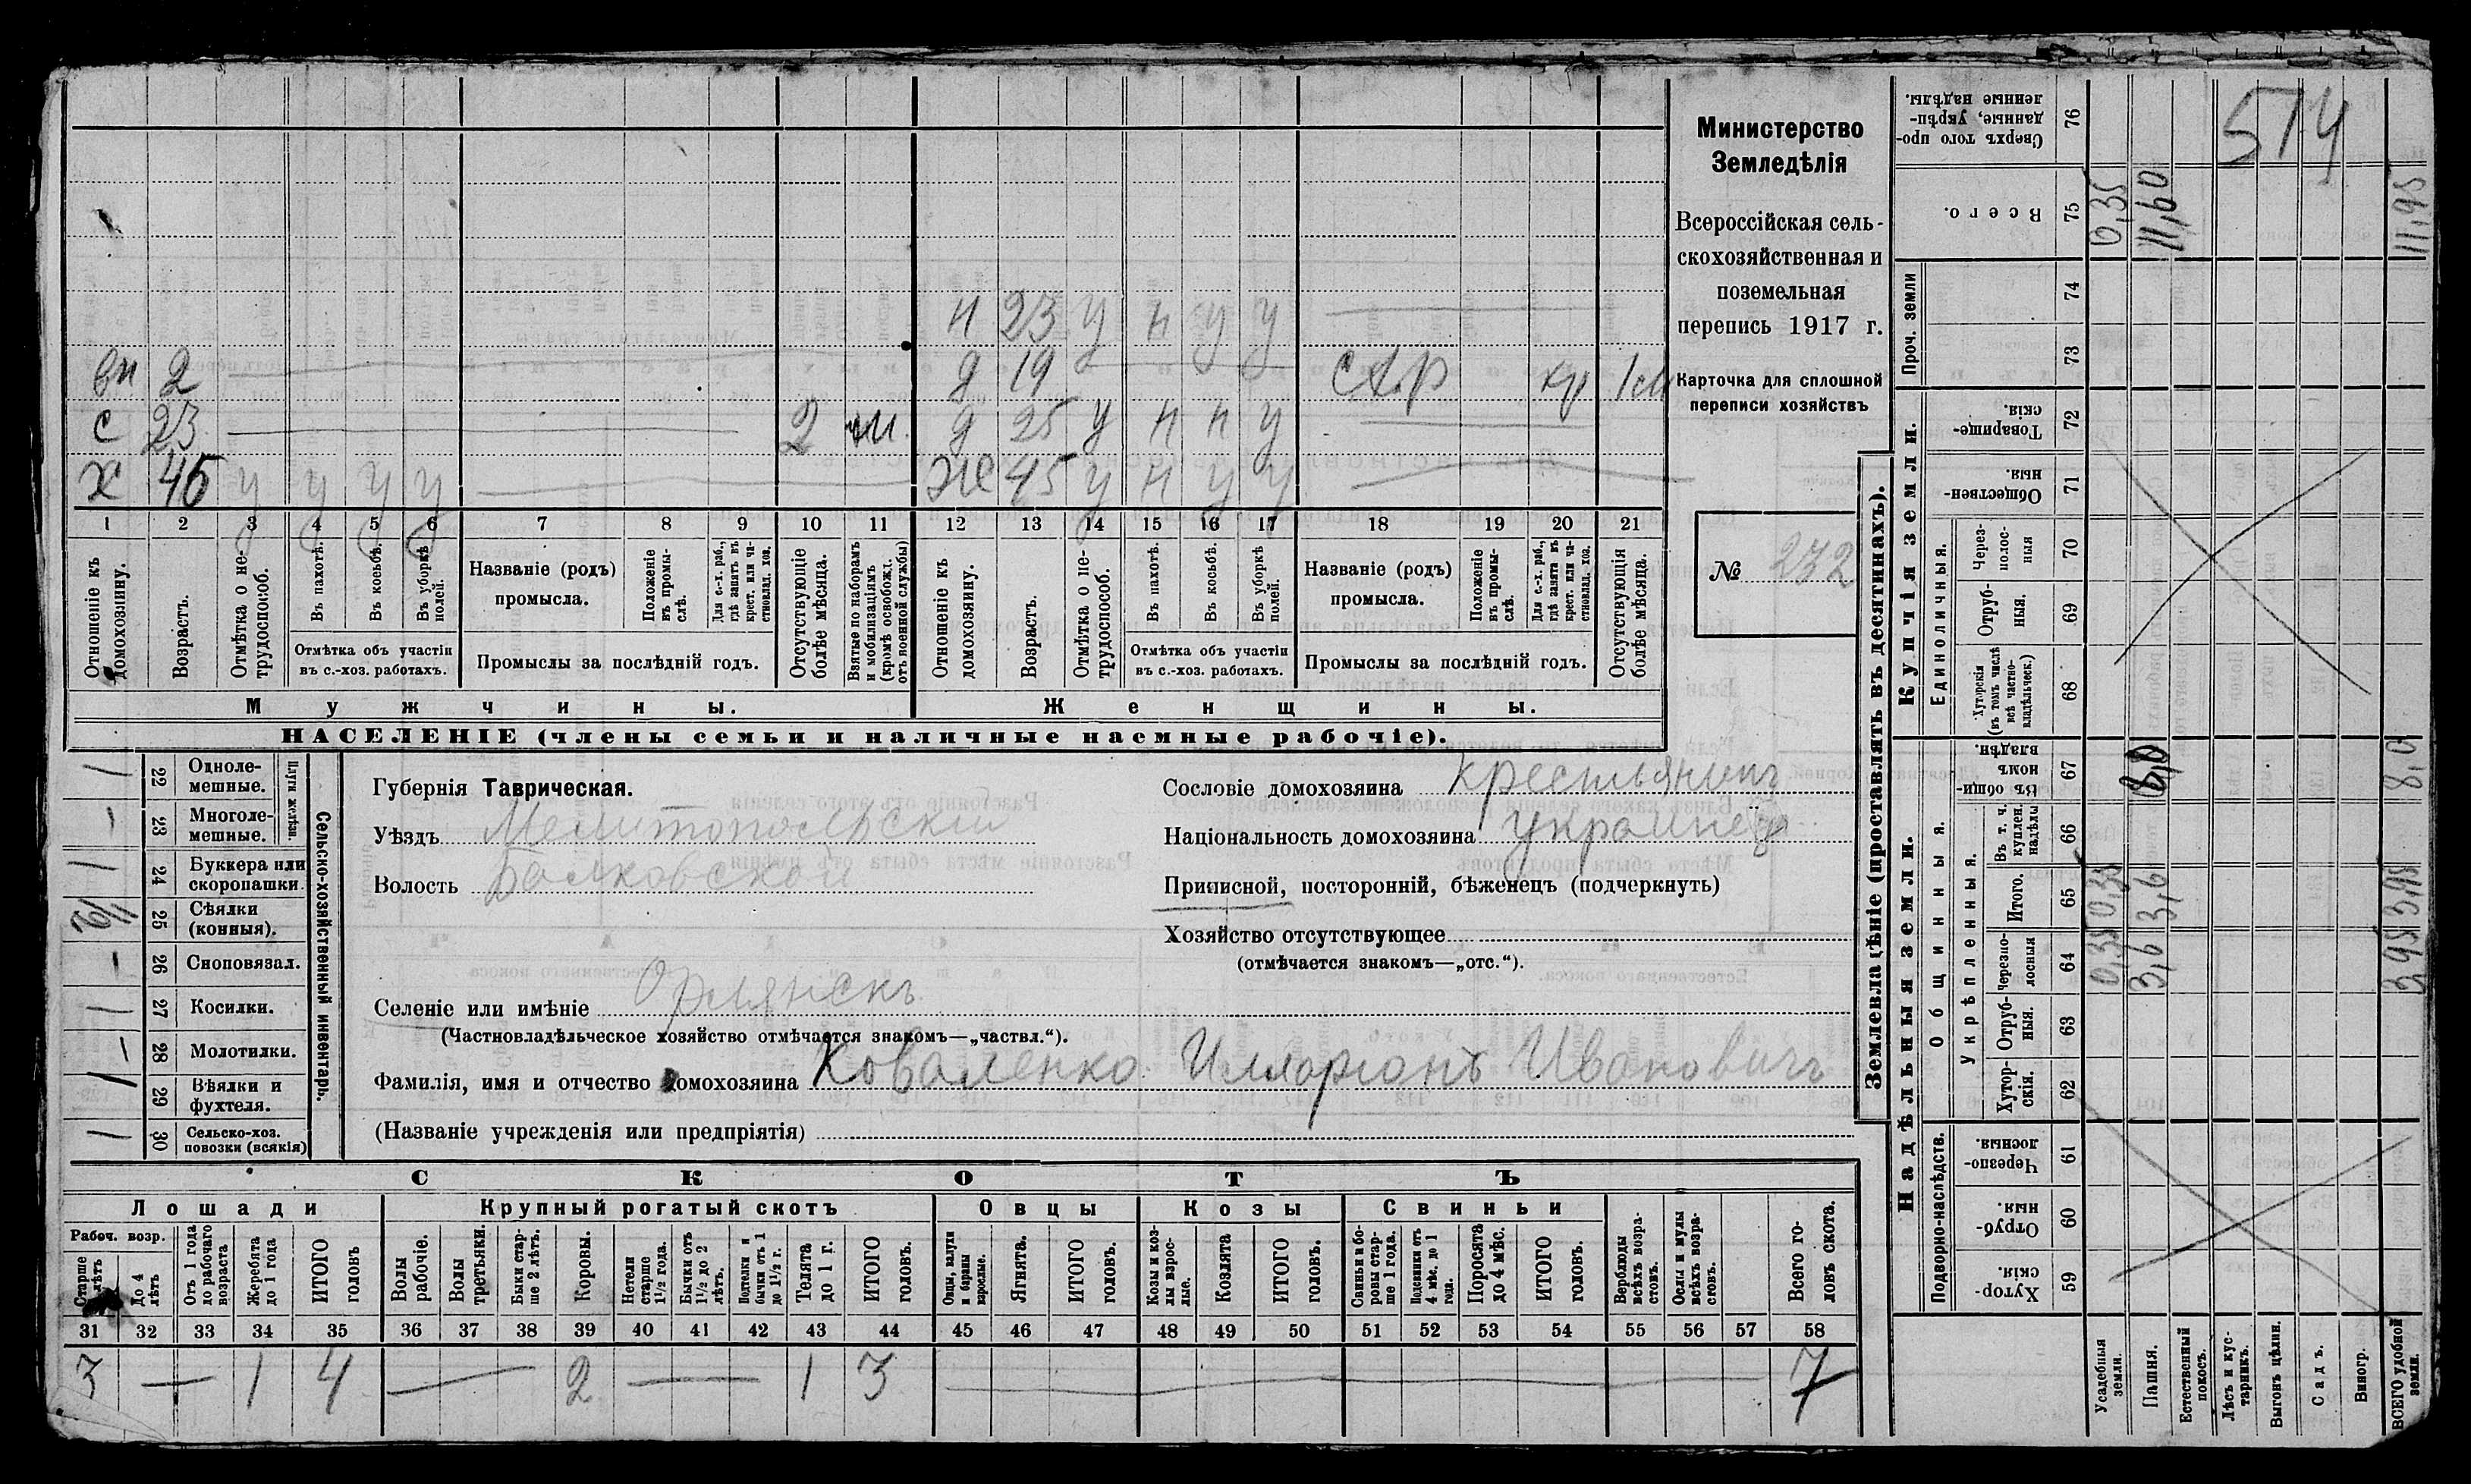 вн 2
с 23 2 м
х 46 у у у у
н 23 у н у у
д 19
д 25 у н н у
же 45 у н у у
1 2 3 4 5 6 7 8 9 10 11 12 13 14 15 16 17 18 19 20 21
Отношеніе къ домохозяину.
Возрастъ.
Отмѣтка о не-трудоспособ.
Въ пахотѣ.
Въ косьбѣ.
Въ уборкѣ полей.
Отмѣтка объ участіи
въ с.-хоз. работахъ.
Названіе (родъ)
промысла.
Положеніе въ промы-слѣ.
Для с.-х. раб., гдѣ занятъ въ крест. или ча-стновлад. хоз.
Промыслы за послѣдній годъ.
Отсутствующіе болѣе мѣсяца.
Взятые по наборамъ и мобилизаціямъ (кромѣ освобожд. отъ военной службы)
Отношеніе къ домохозяину.
Возрастъ.
Отмѣтка о не-трудоспособ.
Въ пахотѣ.
Въ косьбѣ.
Въ уборкѣ полей.
Отмѣтка объ участіи
въ с.-хоз. работахъ.
Названіе (родъ)
промысла.
Положеніе въ промы-слѣ.
Для с.-х. раб., гдѣ занята въ крест. или ча-стновлад. хоз.
Промыслы за послѣдній годъ.
Отсутствующія болѣе мѣсяца.
Мужчины.
Женщины.
НАСЕЛЕНІЕ (члены семьи и наличные наемные рабочіе).
Министерство
Земледѣлія
Всероссійская сель-
скохозяйственная и
поземельная
перепись 1917 г.
Карточка для сплошной
переписи хозяйствъ
№ 232
Сельско-хозяйственный инвентарь.
Плуги желѣзн.
1 22 Одноле-
мешные.
- 23 Многоле-
мешные.
1 24 Буккера или
скоропашки.
25 Сѣялки
(конныя).
- 26 Сноповязал.
1 27 Косилки.
- 28 Молотилки.
1 29 Вѣялки и
фухтеля.
1 30 Сельско-хоз.
повозки (всякія)
Губернія Таврическая.
Уѣздъ Мелитопольскій
Волость Балковской
Селеніе или имѣніе Орлянскъ
(Частновладѣльческое хозяйство отмѣчается знакомъ—„частвл.“).
Фамилія, имя и отчество домохозяина Коваленко Илларіонъ Ивановичъ
(Названіе учрежденія или предпріятія)
Сословіе домохозяина крестьянинъ
Національность домохозяина украинец
Приписной, посторонній, бѣженецъ (подчеркнуть)
Хозяйство отсутствующее
(отмѣчается знакомъ—„отс.“).
СКОТЪ
Лошади
Крупный рогатый скотъ
Овцы
Козы
Свиньи
Рабоч. возр.
Старше 4 лѣтъ
До 4 лѣтъ
Отъ 1 года до рабочаго возраста
Жеребята до 1 года
ИТОГО головъ
Волы рабочіе.
Волы третьяки.
Быки стар-ше 2 лѣтъ.
Коровы.
Нетели старше 1½ года.
Бычки отъ 1½ до 2 лѣтъ.
Подтелки и бычки отъ 1 до 1½ г.
Телята до 1 г.
ИТОГО головъ.
Овцы, валухи и бараны взрослые.
Ягнята.
ИТОГО головъ.
Козы и коз-лы взрос-лые.
Козлята
ИТОГО головъ.
Свиньи и бо-ровы стар-ше 1 года.
Подсвинки отъ 4 мѣс. до 1 года.
Поросята до 4 мѣс.
ИТОГО головъ.
Верблюды всѣхъ возра-стовъ.
Ослы и мулы всѣхъ возра-стовъ.
Всего го-ловъ скота.
31 32 33 34 35 36 37 38 39 40 41 42 43 44 45 46 47 48 49 50 51 52 53 54 55 56 57 58
3 — 1 4 — 2 — 1 3 — 7
Землевладѣніе (проставлять въ десятинахъ).
514
Сверхъ того про-данные, укрѣп-ленные надѣлы. 76
Всего. 75 0,35 11,60 11,95
Проч. земли 74
73
Купчія земли.
Товарище-скія. 72
Обществен-ныя. 71
Единоличныя.
Через-полос-ныя 70
Отруб-ныя. 69
Хуторскія (въ томъ числѣ всѣ частно-владѣльческ.) 68
Надѣльныя земли.
Общинныя.
Въ общин-номъ владѣн. 67 8,0 8,0
Укрѣпленныя.
Въ т. ч. куплен. надѣлы 66
Итого. 65 0,35 3,6 3,95
Черезпо-лосныя 64 0,35 3,6 3,95
Отруб-ныя. 63
Хутор-скія. 62
Подворно-наслѣдств.
Черезпо-лосныя. 61
Отруб-ныя 60
Хутор-скія. 59
Усадебныя земли.
Пашня.
Естественный покосъ.
Лѣсъ и кус-тарникъ.
Выгонъ цѣлин.
Садъ.
Виногр.
ВСЕГО удобной земли.